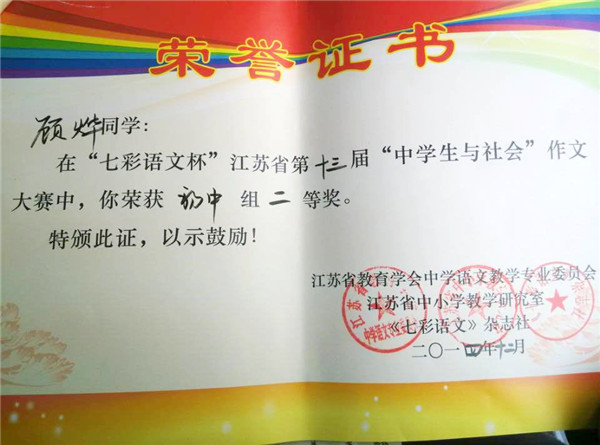 荣誉证书
顾烨同学：
在“七彩语文杯”江苏省第十三届“中学生与社会”作文
大赛中，你荣获 初中 组 二 等奖。
特颁此证，以示鼓励！
江苏省教育学会中学语文教学专业委员会
江苏省中小学教学研究室
《七彩语文》杂志社
二〇一四年十二月